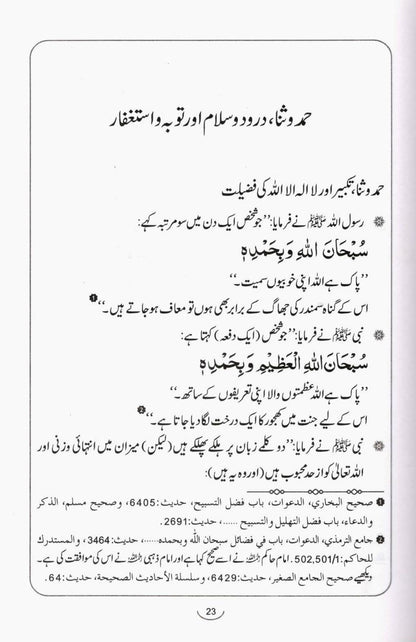 حمد و ثنا، درود و سلام اور توبہ و استغفار
حمد و ثنا، تکبیر اور لا الہ الا اللہ کی فضیلت
رسول اللہ ﷺ نے فرمایا: ’’جو شخص ایک دن میں سو مرتبہ کہے:
سُبْحَانَ اللهِ وَبِحَمْدِهٖ
’’پاک ہے اللہ اپنی خوبیوں سمیت۔‘‘
اس کے گناہ سمندر کی جھاگ کے برابر بھی ہوں تو معاف ہو جاتے ہیں۔‘‘ ❶
نبی ﷺ نے فرمایا: ’’جو شخص (ایک دفعہ) کہتا ہے:
سُبْحَانَ اللهِ الْعَظِيْمِ وَبِحَمْدِهٖ
’’پاک ہے اللہ عظمتوں والا اپنی تعریفوں کے ساتھ۔‘‘
اس کے لیے جنت میں کھجور کا ایک درخت لگا دیا جاتا ہے۔‘‘ ❷
نبی ﷺ نے فرمایا: ’’دو کلمے زبان پر ہلکے پھلکے ہیں (لیکن) میزان میں انتہائی وزنی اور
اللہ تعالیٰ کو از حد محبوب ہیں (اور وہ یہ ہیں):
❶ صحيح البخاري، الدعوات، باب فضل التسبيح، حديث:6405، وصحيح مسلم، الذكر
والدعاء، باب فضل التهليل والتسبيح ......، حديث:2691.
❷ جامع الترمذي، الدعوات، باب في فضائل سبحان الله وبحمده......، حديث:3464، والمستدرك
للحاكم:502,501/1. امام حاکم رحمہ اللہ نے اسے صحیح کہا ہے اور امام ذہبی رحمہ اللہ نے اس کی موافقت کی ہے۔
دیکھیے صحيح الجامع الصغير، حديث:6429، وسلسلة الأحاديث الصحيحة، حديث:64.
23